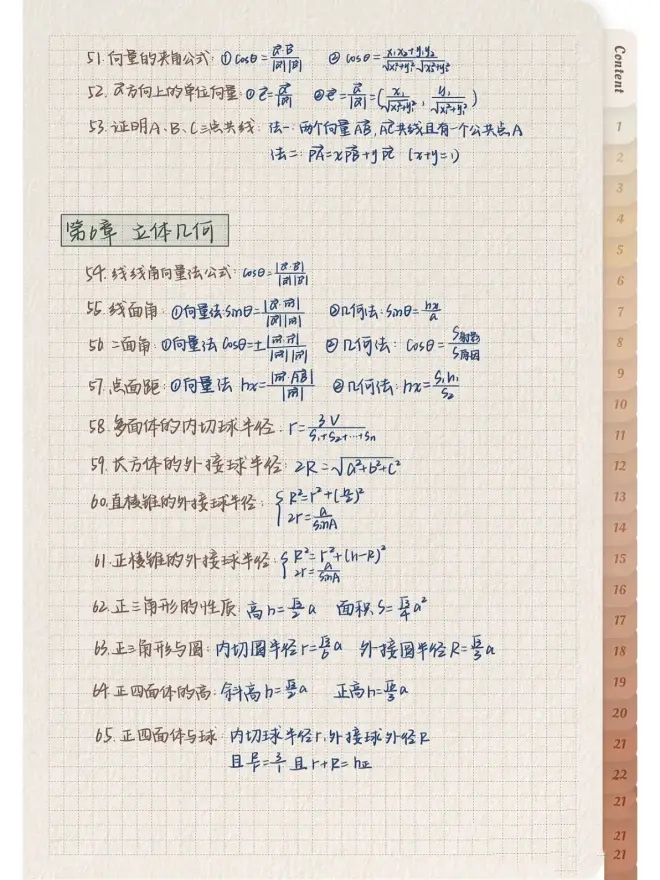 51. 向量的夹角公式: ① cosθ = \frac{\vec{a}·\vec{b}}{|\vec{a}||\vec{b}|} ② cosθ = \frac{x₁x₂+y₁y₂}{\sqrt{x₁²+y₁²}\sqrt{x₂²+y₂²}}
52. \vec{a}方向上的单位向量: ① \vec{e} = \frac{\vec{a}}{|\vec{a}|} ② \vec{e} = \frac{\vec{a}}{|\vec{a}|} = (\frac{x₁}{\sqrt{x₁²+y₁²}}, \frac{y₁}{\sqrt{x₁²+y₁²}})
53. 证明A、B、C三点共线: 法一: 两个向量\vec{AB}, \vec{AC}共线且有一个公共点A
法二: \vec{PA} = x\vec{PB} + y\vec{PC} (x+y=1)
第6章 立体几何
54. 线线角向量法公式: cosθ = \frac{|\vec{a}·\vec{b}|}{|\vec{a}||\vec{b}|}
55. 线面角: ①向量法: sinθ = \frac{|\vec{a}·\vec{n}|}{|\vec{a}||\vec{n}|} ②几何法: sinθ = \frac{hx}{a}
56 二面角: ①向量法 cosθ = ±\frac{|\vec{m}·\vec{n}|}{|\vec{m}||\vec{n}|} ②几何法: cosθ = \frac{S射影}{S原图}
57. 点面距: ①向量法 hx = \frac{|\vec{n}·\vec{AB}|}{|\vec{n}|} ②几何法: hx = \frac{S₁h₁}{S₂}
58. 多面体的内切球半径: r = \frac{3V}{S₁+S₂+…+Sn}
59. 长方体的外接球半径: 2R = \sqrt{a²+b²+c²}
60. 直棱锥的外接球半径: { R² = r² + (\frac{h}{2})²
2r = \frac{a}{sinA}
61. 正棱锥的外接球半径: { R² = r² + (h-R)²
2r = \frac{a}{sinA}
62. 正三角形的性质: 高h = \frac{\sqrt{3}}{2}a 面积S = \frac{\sqrt{3}}{4}a²
63. 正三角形与圆: 内切圆半径r = \frac{\sqrt{3}}{6}a 外接圆半径R = \frac{\sqrt{3}}{3}a
64. 正四面体的高: 斜高h = \frac{\sqrt{3}}{2}a 正高h = \frac{\sqrt{6}}{3}a
65. 正四面体与球: 内切球半径r, 外接球外径R
且\frac{R}{r} = \frac{3}{1} 且 r+R = h正
Content
1
2
3
4
5
6
7
8
9
10
11
12
13
14
15
16
17
18
19
20
21
22
21
21
21